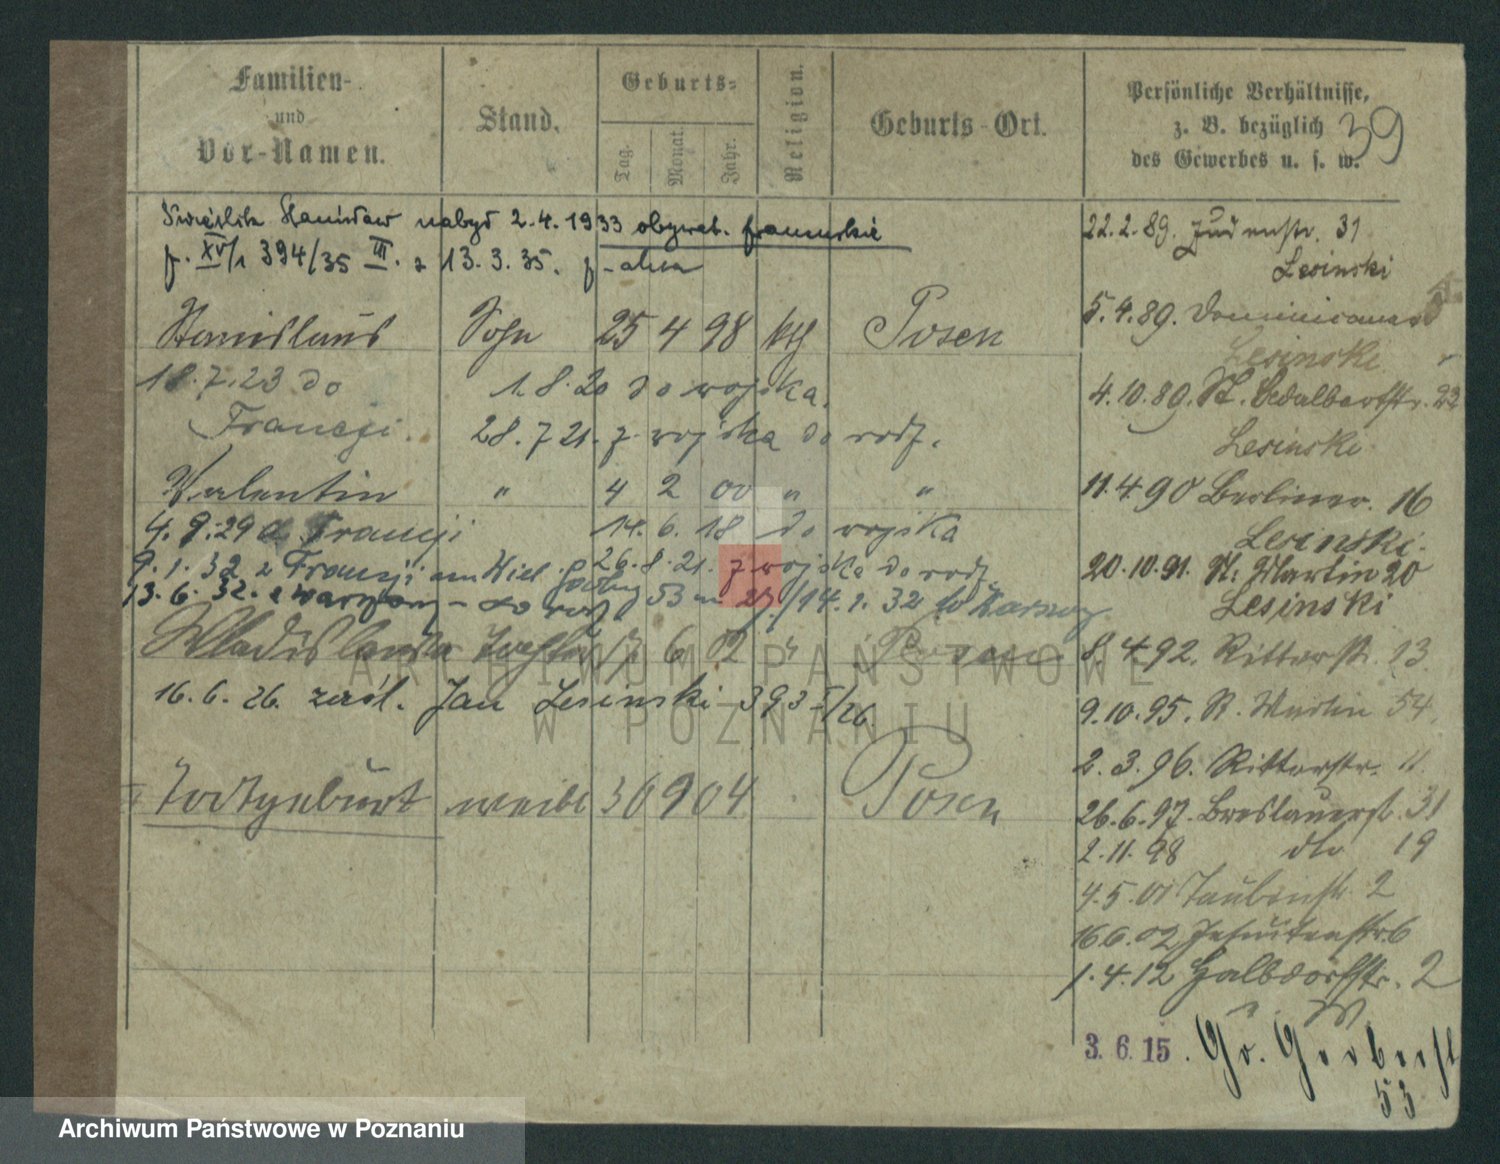 Familien- und Vor-Namen.
Stand.
Geburts-
Tag. Monat. Jahr.
Religion.
Geburts-Ort.
Persönliche Verhältnisse,
z. B. bezüglich
des Gewerbes u. s. w.
39
Stanisław nabył 2.4.1933 obywat. francuskie
p. XV/1 394/35 III. z 13.3.35.
Stanislaus Sohn 25 4 98 kth Posen
18.7.23 do 1.8.20 do wojska.
Francji. 28.7.21. z wojska do rodz.
Valentin " 4 2 00 " "
4.9.29 z Francji 14.6.18 do wojska
9.1.32 z Francji 26.8.21. z wojska do rodz.
13.6.32. z do 53 m 27/14.1.32
Wladislawa Tochter 17 6 02 " Posen
16.6.26. zaśl. Jan Lesinski 393 I/26.
Todtgeburt weibl 30 9 04 Posen
22.2.89. Judenstr. 31
Lesinski
5.4.89. Dominicaner 3
Lesinski
4.10.89. St. Adalbertstr. 22
Lesinski
11.4.90 Berliner. 16
Lesinski.
20.10.91. St. Martin 20
Lesinski
8.4.92. Ritterstr. 13
9.10.95. St. Martin 54.
2.3.96. Ritterstr. 11.
26.6.97. Breslauerstr. 31
2.11.98 dto 19
4.5.01 Taubenstr. 2
16.6.02 Jesuitenstr. 6
1.4.12 Halbdorfstr. 2
3. 6. 15. Gr. Gerberst
53
ARCHIWUM PAŃSTWOWE
W POZNANIU
Archiwum Państwowe w Poznaniu